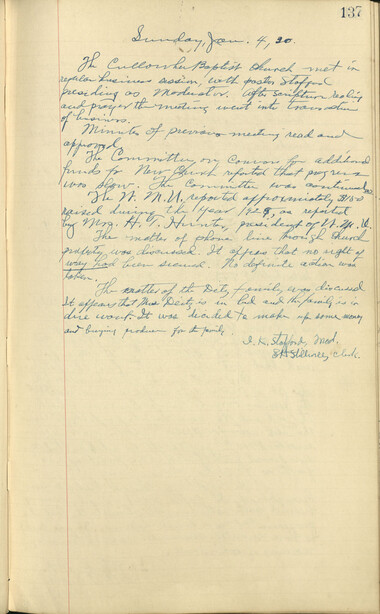 137
Sunday, Jan. 4, 30.
The Cullowhee Baptist Church met in
regular business session with pastor Stafford
presiding as Moderator. After scripture reading
and prayer the meeting went into transaction
of business.
Minutes of previous meeting read and
approved.
The Committee on Canvass for additional
funds for New Church reported that progress
was slow. The Committee was continued.
The W. M. U. reported approximately
raised during the year 1929, as reported
by Mrs. H. T. Hunter, president of W. M. U.
The matter of phone line through church
property was discussed. It appears that no right of
way had been secured. No definite action was
taken.
The matter of the Deitz family was discussed
It appears that Mrs. Deitz is in bed and the family is in
dire want. It was decided to make up some money
and buying produce for the family.
I. K. Stafford, Mod.
Clerk.